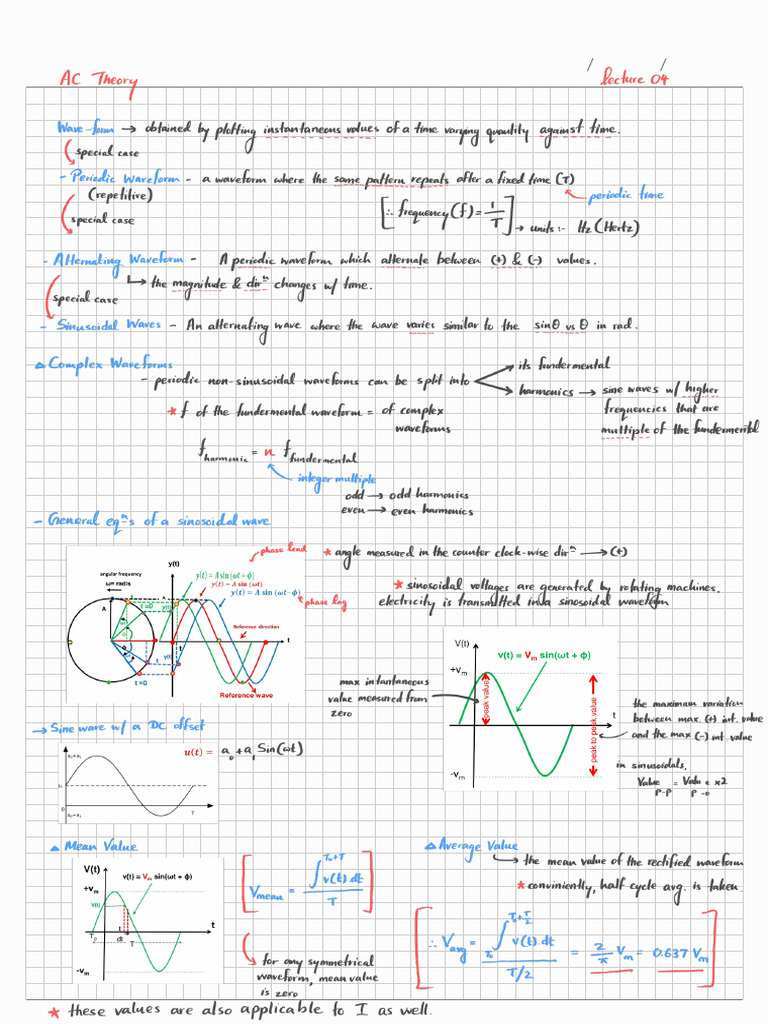 AC Theory
Lecture 04
Wave-form → obtained by plotting instantaneous values of a time varying quantity against time.
special case
- Periodic Waveform - a waveform where the same pattern repeats after a fixed time (T)
(repetitive)
periodic time
[∴ frequency (f) = 1/T]
→ units :- Hz (Hertz)
special case
- Alternating Waveform - A periodic waveform which alternate between (+) & (-) values.
↳ the magnitude & dirⁿ changes w/ time.
special case
- Sinusoidal Waves - An alternating wave where the wave varies similar to the sinθ vs θ in rad.
△ Complex Waveforms
- periodic non-sinusoidal waveforms can be split into
its fundermental
harmonics → sine waves w/ higher
frequencies that are
multiple of the fundermental
* f of the fundermental waveform = of complex
waveforms
f harmonic = n f fundermental
integer multiple
odd → odd harmonics
even → even harmonics
- General eqⁿs of a sinosoidal wave
phase lead
* angle measured in the counter clock-wise dirⁿ → (+)
* sinosoidal voltages are generated by rotating machines.
electricity is transmitted in a sinosoidal waveform
phase lag
angular frequency
ω rad/s
y(t)
y(t) = A sin (ωt + ϕ)
y(t) = A sin (ωt)
y(t) = A sin (ωt−ϕ)
A
t
t =0
y(t)
Reference direction
t
t
y(t)
t =0
Reference wave
V(t)
+Vm
v(t) = Vm sin(ωt + ϕ)
peak value
peak to peak value
t
-Vm
max intantaneous
value measured from
zero
the maximum variation
between max. (+) int. value
and the max (-) int. value
in sinusoidals,
Value P-P = Value P-0 x2
→ Sine wave w/ a DC offset
u(t) = a₀ + a₁ Sin(ωt)
a₀+a₁
a₀
0
a₀−a₁
T
△ Mean Value
V(t)
+Vm
v(t) = Vm sin(ωt + ϕ)
V(t)
t
t
dt
T₀
T
-Vm
Vmean = ∫ T₀ T₀+T v(t) dt / T
for any symmetrical
waveform, mean value
is zero
△ Average Value
↳ the mean value of the rectified waveform
* conviniently, half cycle avg. is taken.
∴ Vavg = ∫ T₀ T₀+T/2 v(t).dt / T/2 = 2/π Vm = 0.637 Vm
* these values are also applicable to I as well.